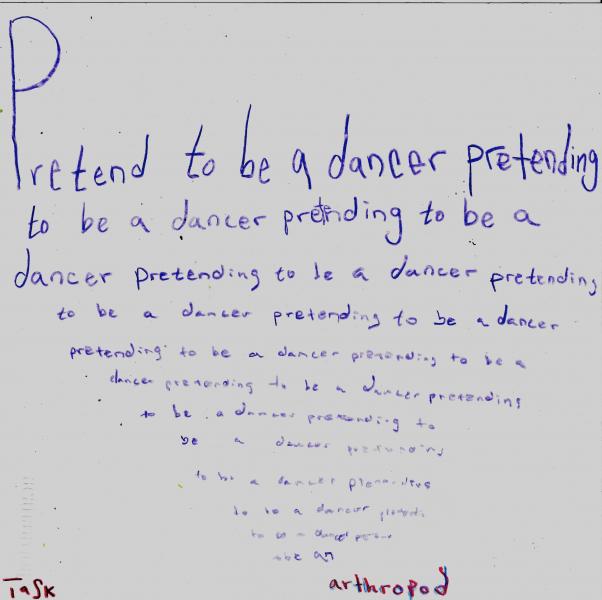 Pretend to be a dancer pretending
to be a dancer pretending to be a
dancer pretending to be a dancer pretending
to be a dancer pretending to be a dancer
pretending to be a dancer pretending to be a
dancer pretending to be a dancer pretending
to be a dancer pretending to
be a dancer pretending
to be a dancer
to be a dancer
to be a dancer
be an
Task arthropod